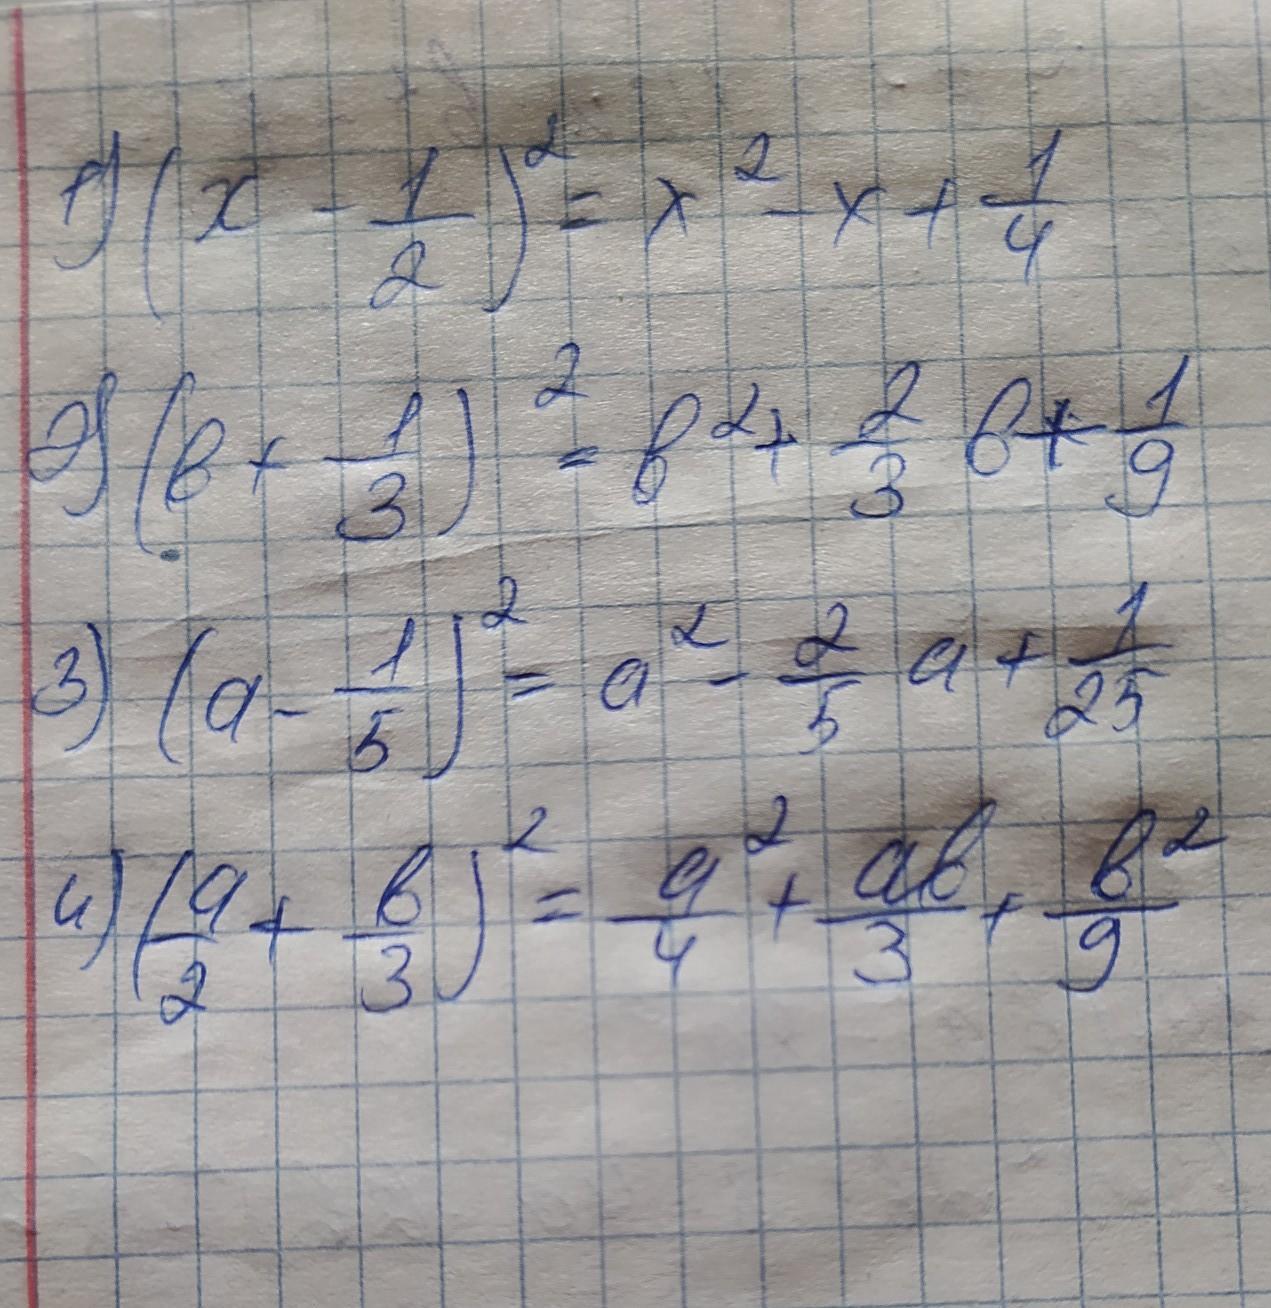 1) (x - 1/2)² = x² - x + 1/4
2) (в + 1/3)² = в² + 2/3 в + 1/9
3) (a - 1/5)² = a² - 2/5 a + 1/25
4) (a/2 + в/3)² = a²/4 + aв/3 + в²/9